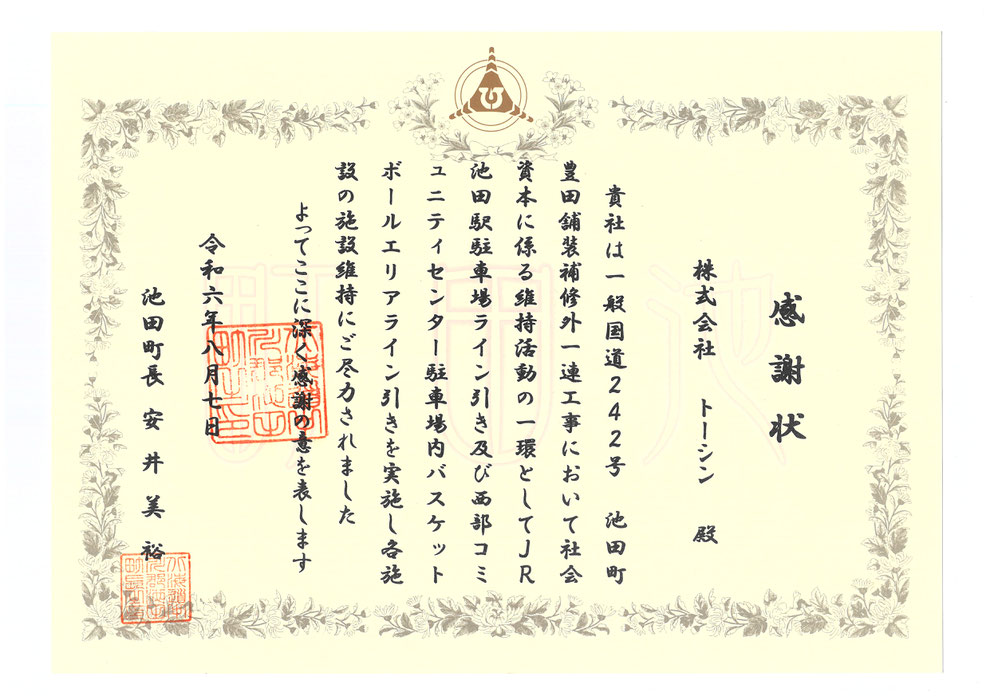 感謝状
株式会社 トーシン 殿
貴社は一般国道242号 池田町
豊田舗装補修外一連工事において社会
資本に係る維持活動の一環としてJR
池田駅駐車場ライン引き及び西部コミ
ュニティセンター駐車場内バスケット
ボールエリアライン引きを実施し各施
設の施設維持にご尽力されました
よってここに深く感謝の意を表します
令和六年八月七日
池田町長 安井美裕